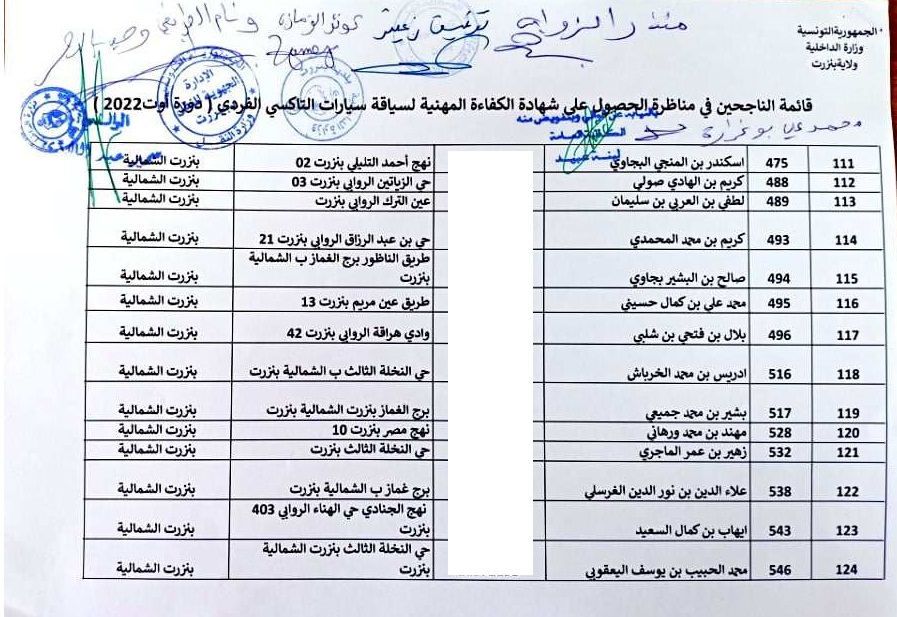 الجمهورية التونسية
وزارة الداخلية
ولاية بنزرت
منذر الزواري
محمد علي بوغرارة
قائمة الناجحين في مناظرة الحصول على شهادة الكفاءة المهنية لسياقة سيارات التاكسي الفردي ( دورة أوت2022 )
111 475 اسكندر بن المنجي البجاوي نهج أحمد التليلي بنزرت 02 بنزرت الشمالية
112 488 كريم بن الهادي صولي حي الزياتين الروابي بنزرت 03 بنزرت الشمالية
113 489 لطفي بن العربي بن سليمان عين الترك الروابي بنزرت بنزرت الشمالية
114 493 كريم بن محمد المحمدي حي بن عبد الرزاق الروابي بنزرت 21 بنزرت الشمالية
115 494 صالح بن البشير بجاوي طريق الناظور برج الغماز ب الشمالية بنزرت بنزرت الشمالية
116 495 محمد علي بن كمال حسيني طريق عين مريم بنزرت 13 بنزرت الشمالية
117 496 بلال بن فتحي بن شلبي وادي هراقة الروابي بنزرت 42 بنزرت الشمالية
118 516 ادريس بن محمد الخرباش حي النخلة الثالث ب الشمالية بنزرت بنزرت الشمالية
119 517 بشير بن محمد جميعي برج الغماز بنزرت الشمالية بنزرت بنزرت الشمالية
120 528 مهند بن محمد ورهاني نهج مصر بنزرت 10 بنزرت الشمالية
121 532 زهير بن عمر الماجري حي النخلة الثالث بنزرت بنزرت الشمالية
122 538 علاء الدين بن نور الدين الغرسلي برج غماز ب الشمالية بنزرت بنزرت الشمالية
123 543 ايهاب بن كمال السعيد نهج الجنادي حي الهناء الروابي 403 بنزرت بنزرت الشمالية
124 546 محمد الحبيب بن يوسف اليعقوبي حي النخلة الثالث بنزرت الشمالية بنزرت بنزرت الشمالية